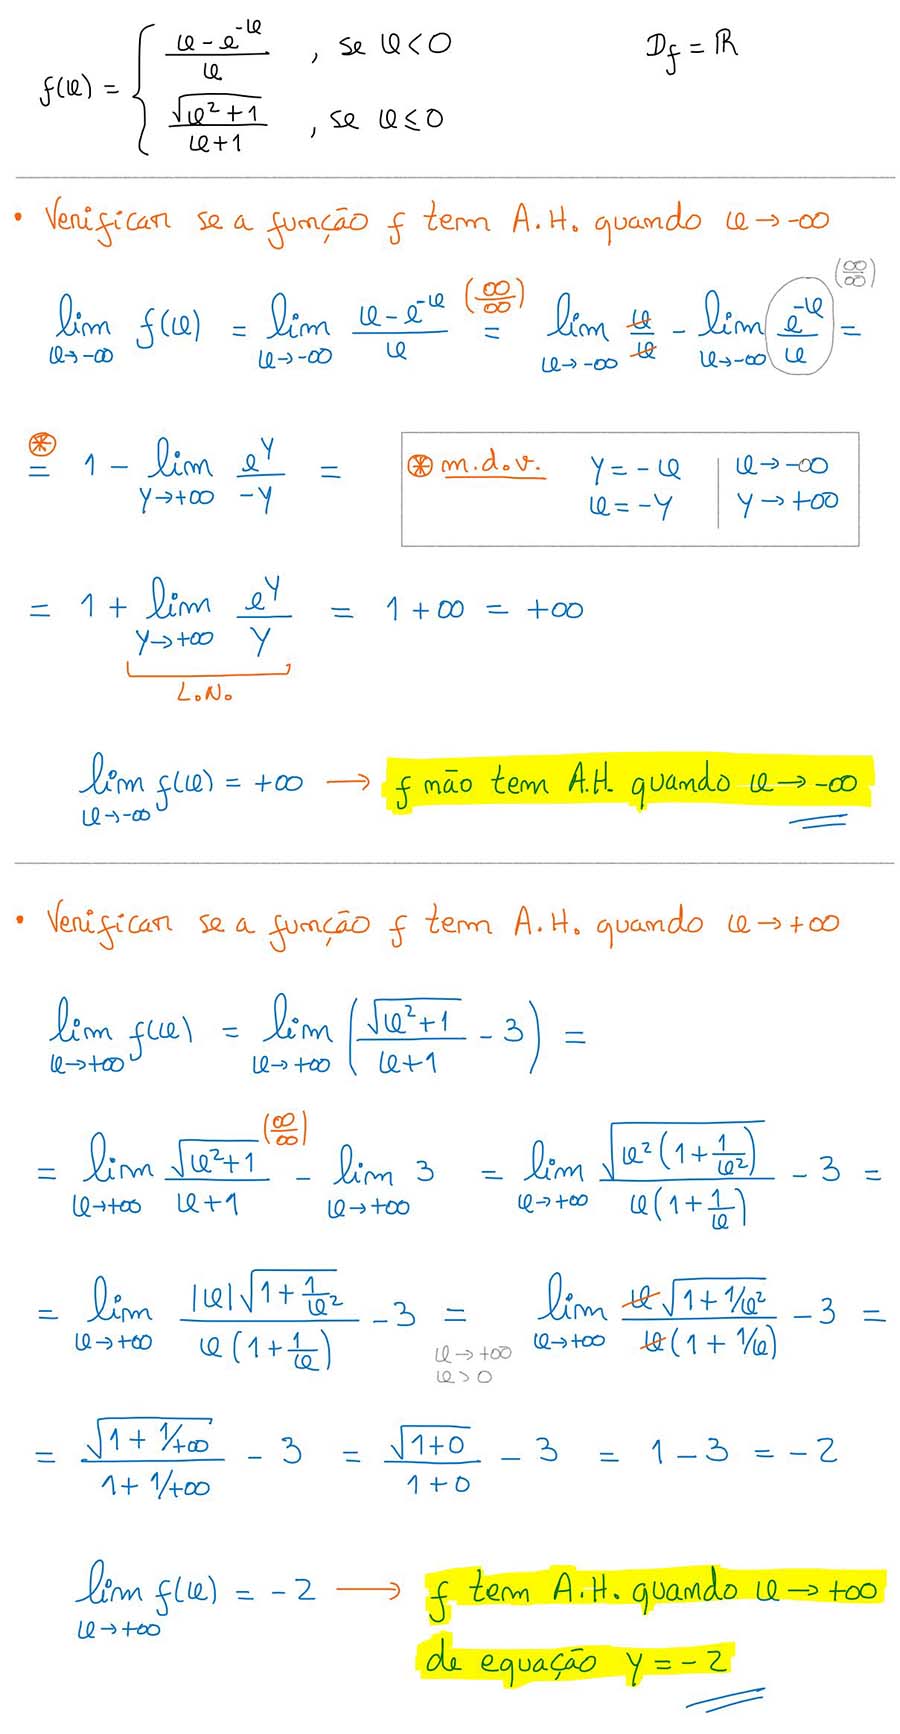 f(x) = { (x - e^-x)/x , se x < 0    D_f = ℝ
√(x² + 1)/(x + 1) , se x ≤ 0
• Verificar se a função f tem A.H. quando x → -∞
lim_{x→-∞} f(x) = lim_{x→-∞} (x - e^-x)/x (∞/∞) = lim_{x→-∞} x/x - lim_{x→-∞} e^-x/x (∞/∞) =
⊛ = 1 - lim_{y→+∞} e^y/-y =
⊛ m.d.v. y = -x | x → -∞
x = -y | y → +∞
= 1 + lim_{y→+∞} e^y/y = 1 + ∞ = +∞
L.N.
lim_{x→-∞} f(x) = +∞ → f não tem A.H. quando x → -∞
• Verificar se a função f tem A.H. quando x → +∞
lim_{x→+∞} f(x) = lim_{x→+∞} (√(x² + 1)/(x + 1) - 3) =
= lim_{x→+∞} √(x² + 1)/(x + 1) (∞/∞) - lim_{x→+∞} 3 = lim_{x→+∞} √(x²(1 + 1/x²))/(x(1 + 1/x)) - 3 =
= lim_{x→+∞} |x|√(1 + 1/x²)/(x(1 + 1/x)) - 3 = lim_{x→+∞} x√(1 + 1/x²)/(x(1 + 1/x)) - 3 =
x → +∞
x > 0
= √(1 + 1/+∞)/(1 + 1/+∞) - 3 = √(1+0)/(1+0) - 3 = 1 - 3 = -2
lim_{x→+∞} f(x) = -2 → f tem A.H. quando x → +∞
de equação y = -2